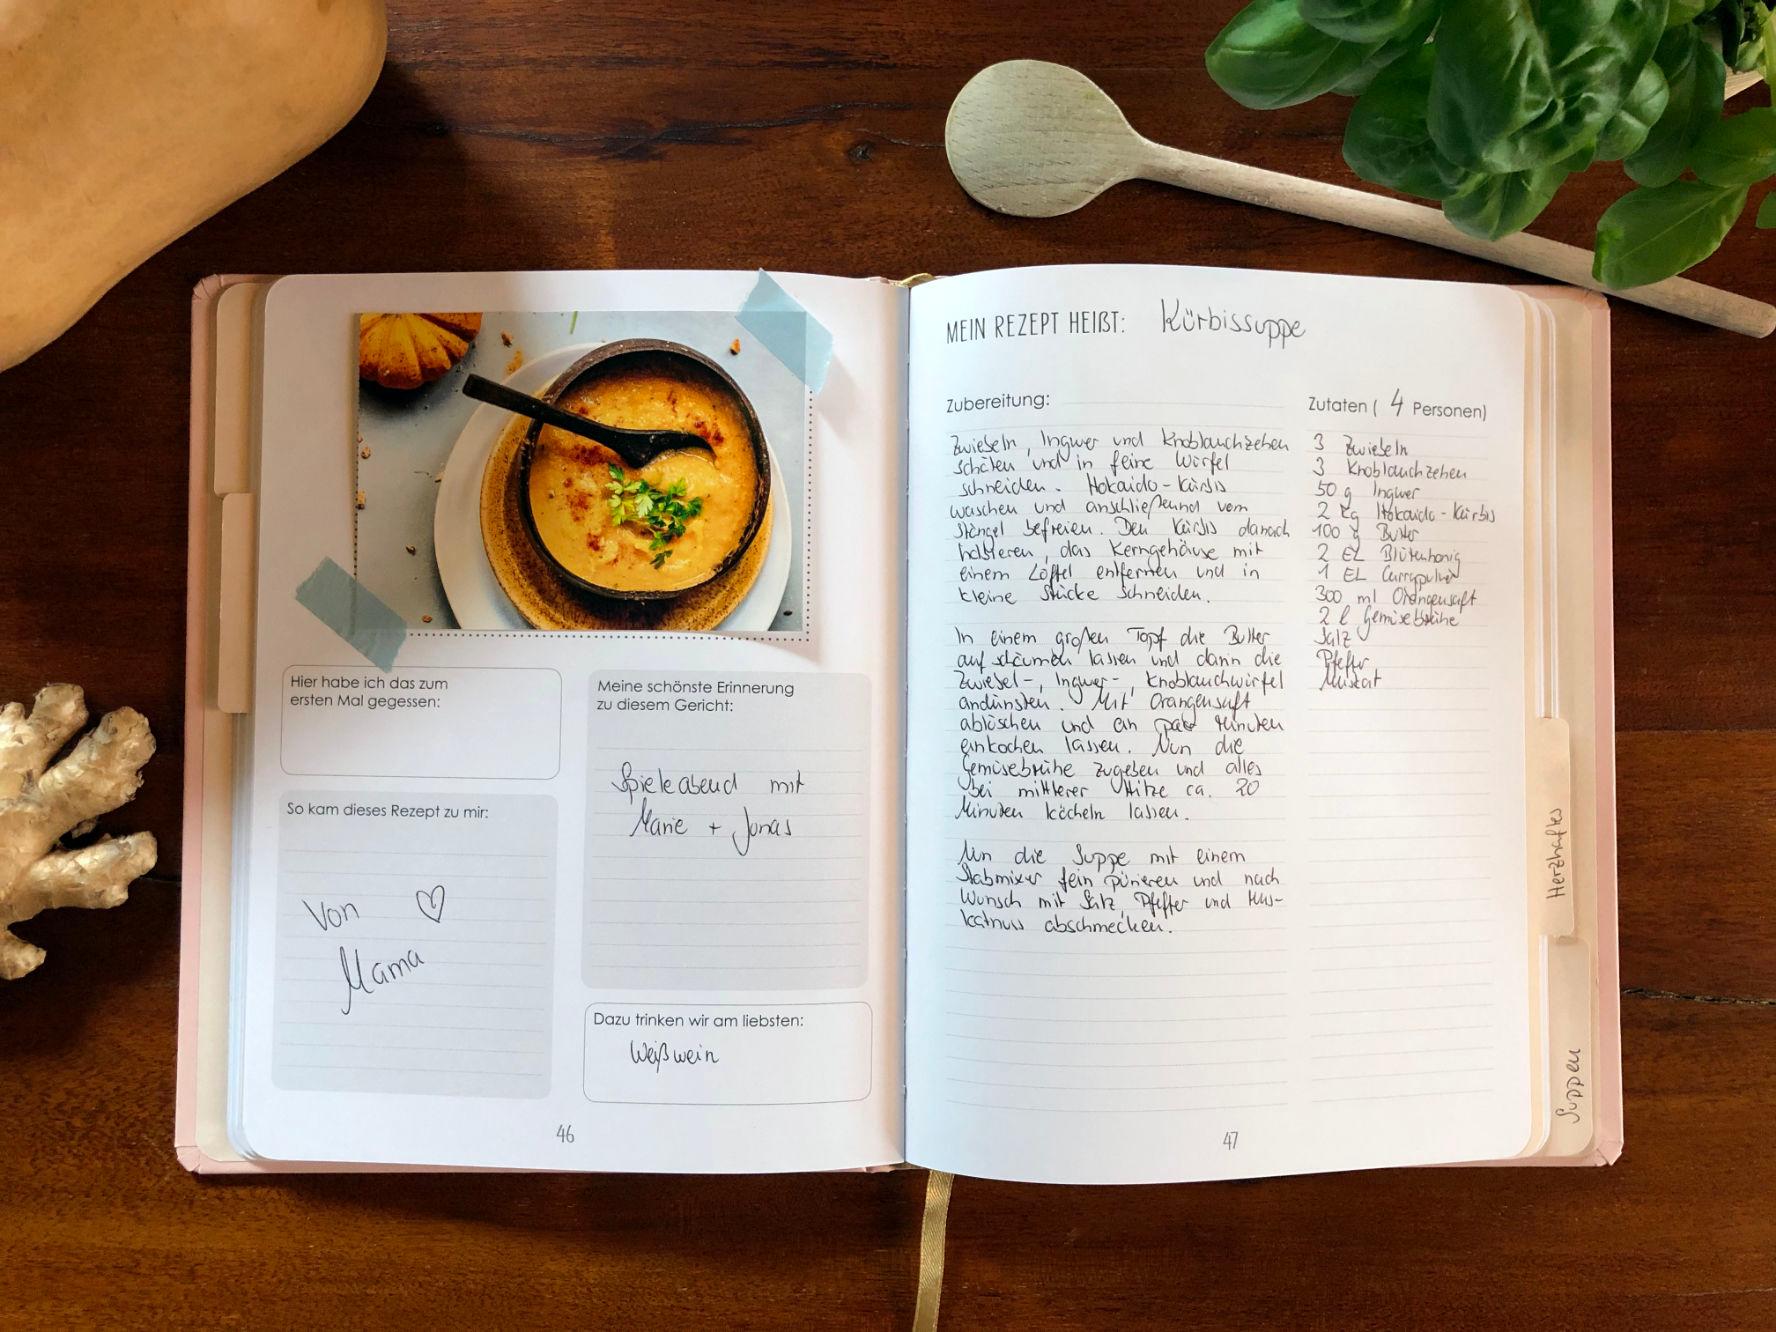 Hier habe ich das zum
ersten Mal gegessen:
So kam dieses Rezept zu mir:
Von ♡
Mama
Meine schönste Erinnerung
zu diesem Gericht:
Spieleabend mit
Marie + Jonas
Dazu trinken wir am liebsten:
Weißwein
46
MEIN REZEPT HEIẞT: Kürbissuppe
Zubereitung:
Zwiebeln, Ingwer und Knoblauchzehen
schälen und in feine Würfel
schneiden. Hokaido-Kürbis
waschen und anschließend vom
Stängel befreien. Den Kürbis danach
halbieren, das Kerngehäuse mit
einem Löffel entfernen und in
kleine Stücke schneiden.
In einem großen Topf die Butter
aufschäumen lassen und darin die
Zwiebel-, Ingwer-, Knoblauchwürfel
andünsten. Mit Orangensaft
ablöschen und ein paar Minuten
einkochen lassen. Nun die
Gemüsebrühe zugeben und alles
bei mittlerer Hitze ca. 20
Minuten köcheln lassen.
Nun die Suppe mit einem
Stabmixer fein pürieren und nach
Wunsch mit Salz, Pfeffer und Mus-
katnuss abschmecken.
Zutaten ( 4 Personen)
3 Zwiebeln
3 Knoblauchzehen
50 g Ingwer
2 kg Hokaido-Kürbis
100 g Butter
2 EL Blütenhonig
1 EL Currypulver
300 ml Orangensaft
2 l Gemüsebrühe
Salz
Pfeffer
Muskat
47
Herzhaftes
Suppen